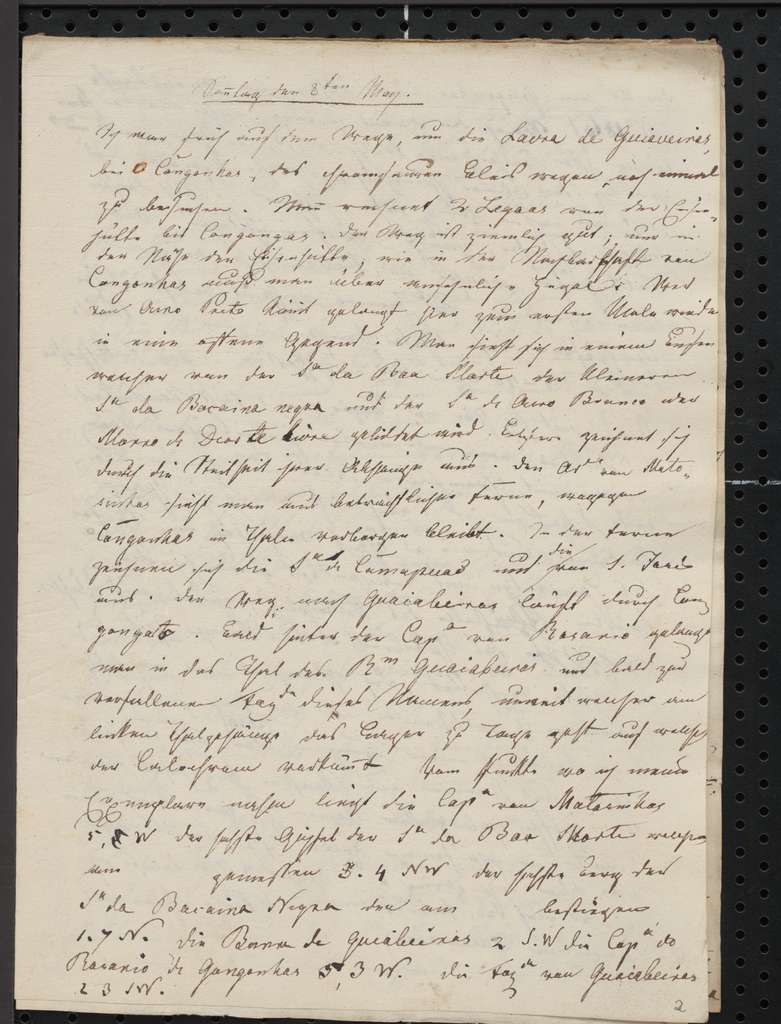 Sonntag den 8ten May.
Ich war früh auf dem Wege, um die Lavra de Guiaveiras,
bei Congonhas, des chromsauren Bleis wegen, noch einmal
zu besuchen. Man rechnet 2 Legoas von der Eisen-
hütte bis Congongas. Der Weg ist ziemlich gut; nur in
der Nähe der Eisenhütte, wie in der Nachbarschaft von
Congonhas muß man über ansehnliche Hügel. Wer
von Ouro Preto kömt gelangt hier zum ersten Male wieder
in eine offene Gegend. Man sieht sich in einem
welcher von der Sra da Boa Morte der kleineren
Sra da Bocaina negra und der Sra de Ouro Branco oder
Morro de gebildet wird. Letztere zeichnet sich
durch die Steilheit ihrer Abhänge aus. Den von Mato-
sinhos sieht man aus beträchtlicher Ferne, wogegen
Congonhas im Thale verborgen bleibt. In der Ferne
zeichnen sich die Sra de Camapuao und die von S. José
aus. Der Weg nach Guaiabeiras läuft durch Con-
gongas. Bald hinter der Capa von Rosario gelangt
man in das Thal des Rm Guaiabeiras und bald zur
verfallenen Fazda dieses Namens, unweit welcher am
linken Thalgehänge das Lager zu Tage geht auf welchem
der vorkömt. Vom Punkte wo ich meine
Exemplare nahm liegt die Capa von Matosinhos
5, W der höchste Gipfel der Sra da Boa Morte welchen
am gemessen 3. 4 NW der höchste Berg der
Sra da Bocaina Negra den am bestiegen
1. 7 N. die Lavra de Guiabeiras 2 S.W die Capa do
Rosario de Gongonhas 5, 3 W. die Fazda von Guaiabeiras
2 3 SW.
2